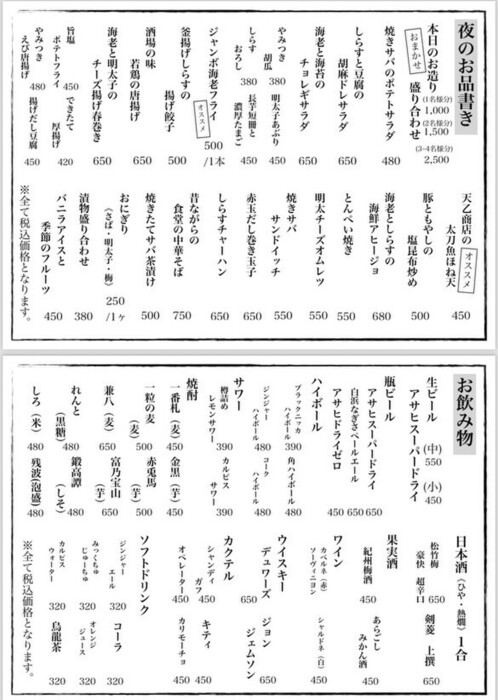 夜のお品書き
本日のお造り
おまかせ
盛り合わせ
(1名様分)
1,000
(2名様分)
1,500
(3-4名様分)
2,500
焼きサバのポテトサラダ
480
しらすと豆腐の
胡麻ドレサラダ
650
海老と海苔の
チョレギサラダ
650
やみつき
胡瓜
380
明太子あぶり
450
しらす
おろし
380
長芋短冊と
濃厚たまご
450
ジャンボ海老フライ
オススメ
500
/1本
釜揚げしらすの
揚げ餃子
500
酒場の味
若鶏の唐揚げ
650
海老と明太子の
チーズ揚げ春巻き
650
旨塩
ポテトフライ
450
できたて
厚揚げ
420
やみつき
えび唐揚げ
480
揚げだし豆腐
450
天乙商店の
太刀魚ほね天
オススメ
450
豚ともやしの
塩昆布炒め
500
海老としらすの
海鮮アヒージョ
680
とんぺい焼き
550
明太チーズオムレツ
550
焼きサバ
サンドイッチ
550
赤玉だし巻き玉子
500
しらすチャーハン
650
昔ながらの
食堂の中華そば
750
焼きたてサバ茶漬け
500
おにぎり
(さば・明太子・梅)
250
/1ヶ
漬物盛り合わせ
380
バニラアイスと
季節のフルーツ
450
※全て税込価格となります。
お飲み物
生ビール
アサヒスーパードライ
(中)
550
(小)
450
瓶ビール
アサヒスーパードライ
650
白浜なぎさペールエール
650
アサヒドライゼロ
450
ハイボール
ブラックニッカ
ハイボール
390
角ハイボール
480
ジンジャー
ハイボール
480
コーク
ハイボール
480
サワー
樽詰め
レモンサワー
390
カルピス
サワー
390
焼酎
一番札(麦)
450
金黒(芋)
450
一粒の麦
(麦)
500
赤兎馬
(芋)
500
兼八(麦)
650
富乃宝山
(芋)
500
れんと
(黒糖)
480
鍛高譚
(しそ)
480
しろ(米)
480
残波(泡盛)
480
日本酒(ひや・熱燗)1合
松竹梅
豪快 超辛口
650
剣菱 上撰
650
果実酒
紀州梅酒
450
あらごし
みかん酒
450
ワイン
カベルネ(赤)
ソーヴィニヨン
450
シャルドネ(白)
450
ウイスキー
デュワーズ
650
ジョン
ジェムソン
650
カクテル
シャンディ
ガフ
450
キティ
450
オペレーター
450
カリモーチョ
450
ソフトドリンク
ジンジャー
エール
320
コーラ
320
みっくちゅ
じゅーちゅ
320
オレンジ
ジュース
320
カルピス
ウォーター
320
烏龍茶
320
※全て税込価格となります。